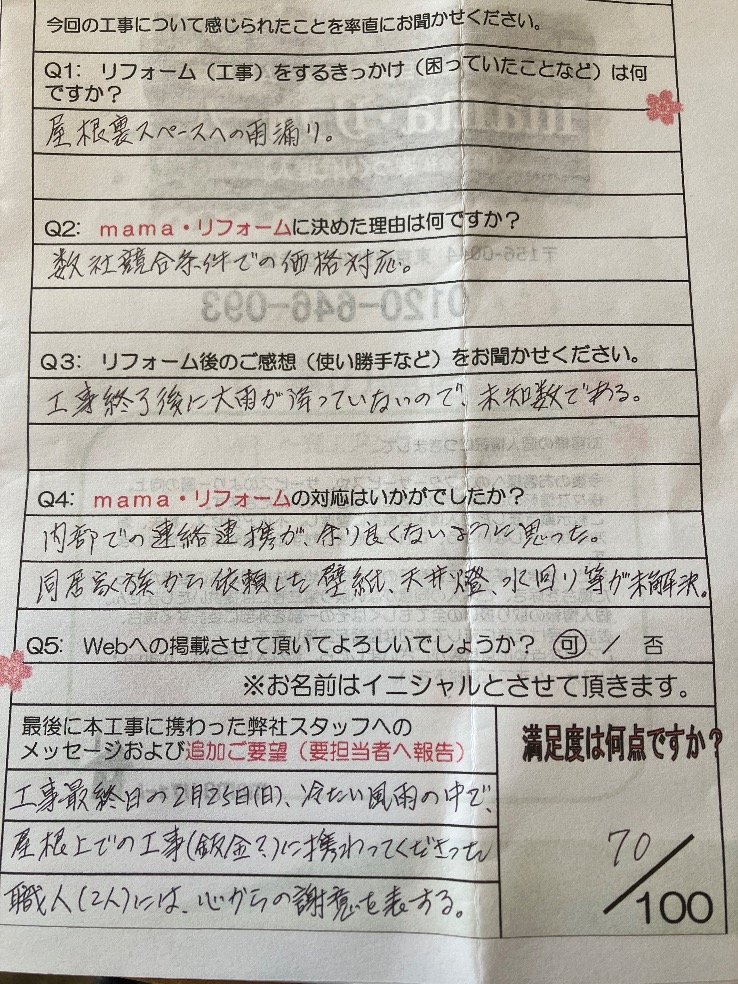 今回の工事について感じられたことを率直にお聞かせください。
Q1: リフォーム（工事）をするきっかけ（困っていたことなど）は何
ですか？
屋根裏スペースへの雨漏り。
Q2: mama・リフォームに決めた理由は何ですか？
数社競合条件での価格対応。
0120-646-093
Q3: リフォーム後のご感想（使い勝手など）をお聞かせください。
工事終了後に大雨が降っていないので、未知数である。
Q4: mama・リフォームの対応はいかがでしたか？
内部での連絡連携が、余り良くないように思った。
同居家族から依頼した壁紙、天井燈、水回り等が未解決。
Q5: Webへの掲載させて頂いてよろしいでしょうか？ 可 / 否
※お名前はイニシャルとさせて頂きます。
最後に本工事に携わった弊社スタッフへの
メッセージおよび追加ご要望（要担当者へ報告）
工事最終日の2月25日(日)、冷たい風雨の中で、
屋根上での工事(鈑金?)に携わってくださった
職人(2人)には、心からの謝意を表する。
満足度は何点ですか？
70/100